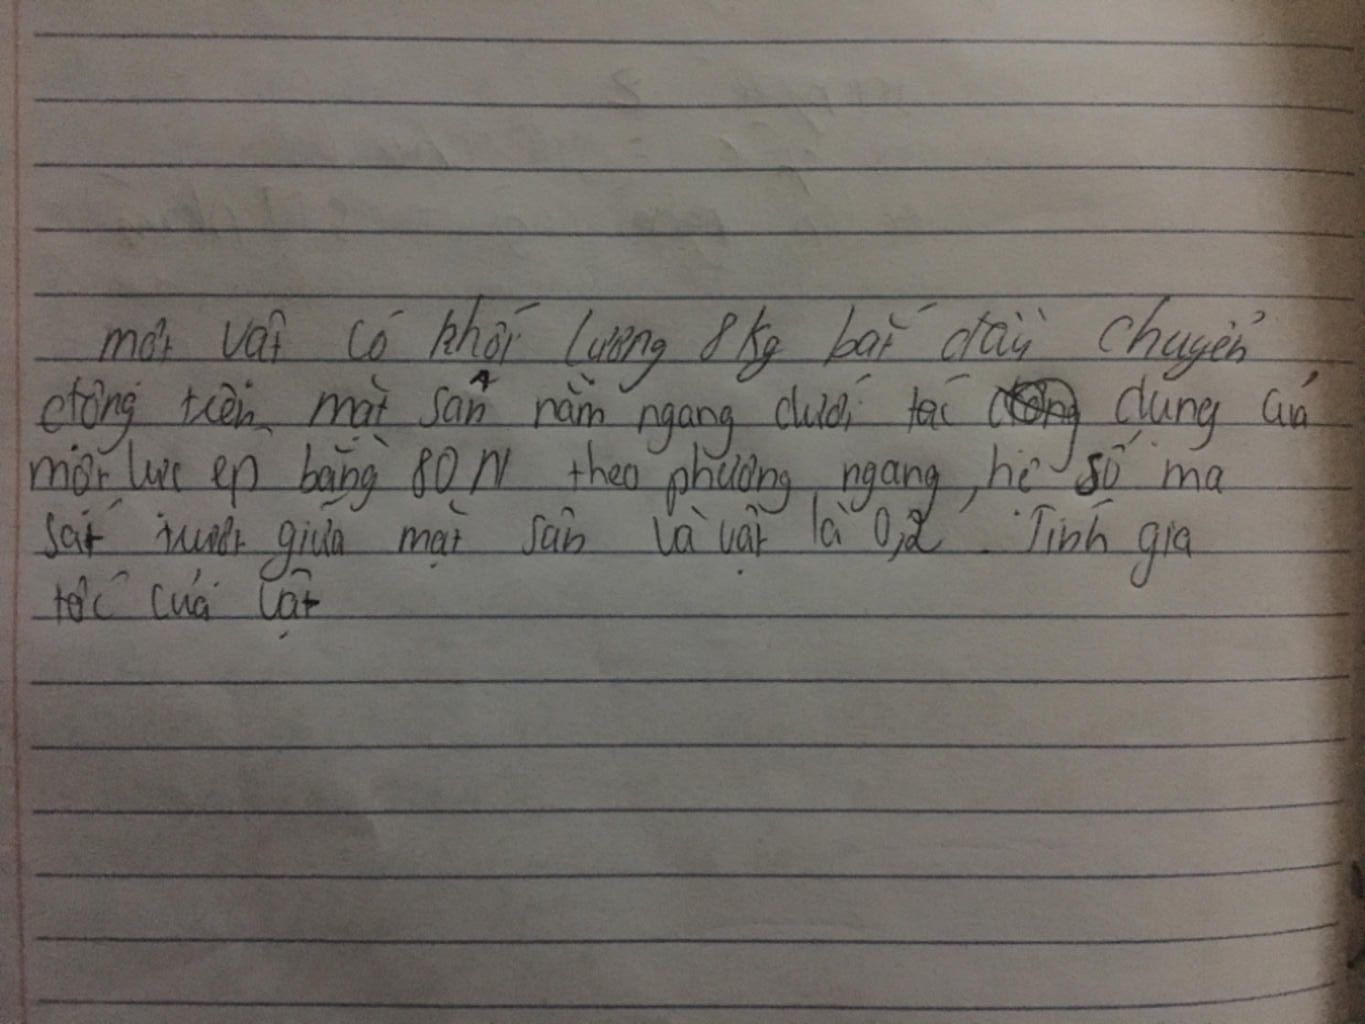 một vật có khối lượng 8kg bắt đầu chuyển
động trên mặt sân nằm ngang dưới tác dụng của
một lực ep bằng 80 N theo phương ngang, hệ số ma
sát trượt giữa mặt sân và vật là 0,2. Tính gia
tốc của vật